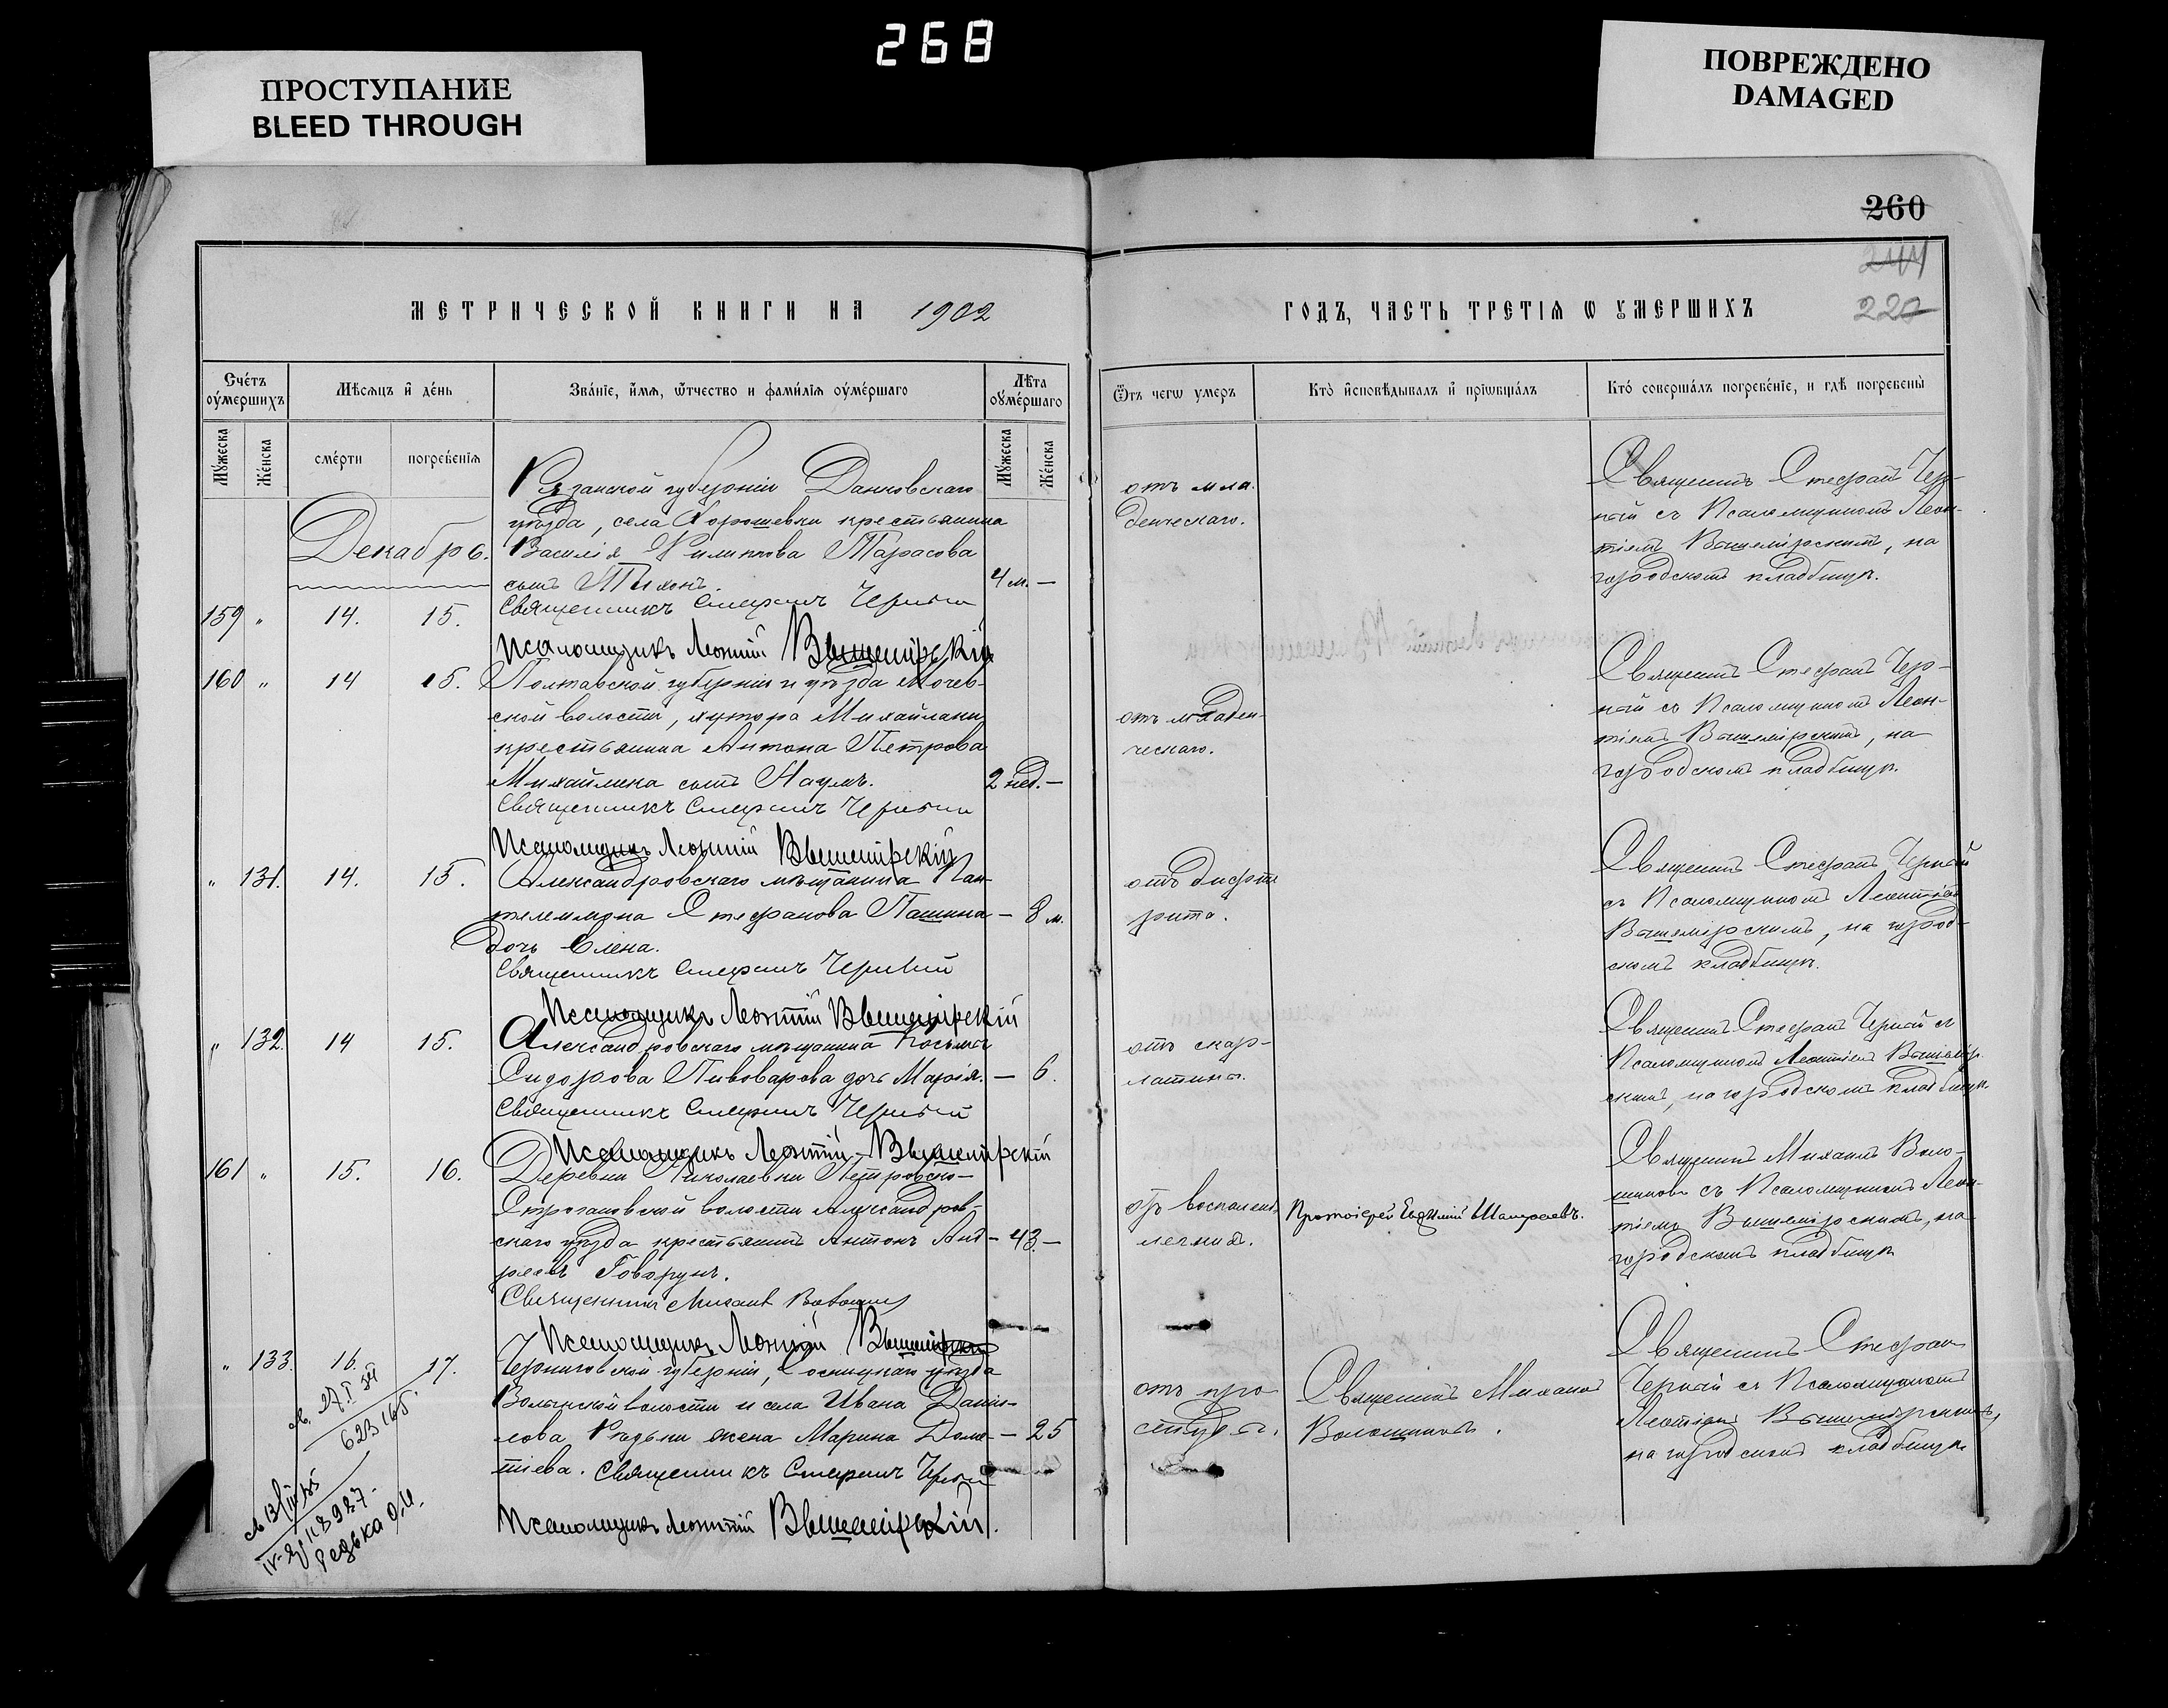 268
ПРОСТУПАНИЕ
BLEED THROUGH
ПОВРЕЖДЕНО
DAMAGED
260
244
220
МЕТРИЧЕСКОЙ КНИГИ НА 1902
ГОДЪ, ЧАСТЬ ТРЕТІѦ Ѡ УМЕРШИХЪ
Счетъ оумершихъ
Мѣсяцъ и день
Званіе, имя, ѿчество и фамилія оумершаго
Лѣта оумершаго
Ѿъ чегѡ умеръ
Кто исповѣдывалъ и пріѡбщалъ
Кто совершалъ погребеніе, и гдѣ погребены
Мужеска
Женска
смерти
погребенія
Мужеска
Женска
Декабрь.
Рязанской губерніи Данковскаго
уѣзда, села Хорошевки крестьянина
Василія Филиппова Тарасова
сынъ Тихонъ. 4 м. —
159 " 14. 15. Священникъ Стефанъ Черный
Псаломщикъ Леонтій Вышемірскій
отъ мла-
денческаго.
Священникъ Стефанъ Чер-
ный съ Псаломщикомъ Леон-
тіемъ Вышемірскимъ, на
городскомъ кладбищѣ.
160 " 14 15. Полтавской губерніи и уѣзда
ской волости, хутора Михайлики
крестьянина Антона Петрова
Михайлика сынъ Наумъ. 2 нед. —
Священникъ Стефанъ Черный
Псаломщикъ Леонтій Вышемірскій
отъ младен-
ческаго.
Священникъ Стефанъ Чер-
ный съ Псаломщикомъ Леон-
тіемъ Вышемірскимъ, на
городскомъ кладбищѣ.
" 131. 14. 15. Александровскаго мѣщанина Пан-
телеимона Стефанова Пашина — 8 м.
дочь Елена.
Священникъ Стефанъ Черный
Псаломщикъ Леонтій Вышемірскій
отъ дифте
рита.
Священникъ Стефанъ Черный
съ Псаломщикомъ Леонтіемъ
Вышемірскимъ, на город-
скомъ кладбищѣ.
" 132. 14 15. Александровскаго мѣщанина Косьмы
Сидорова Пивоварова дочь Марія. — 6.
Священникъ Стефанъ Черный
Псаломщикъ Леонтій Вышемірскій
отъ скар-
латины.
Священникъ Стефанъ Черный съ
Псаломщикомъ Леонтіемъ Вышемір-
скимъ, на городскомъ кладбищѣ.
161 " 15. 16. Деревни Николаевки Петровско-
Строгановской волости Александров-
скаго уѣзда крестьянинъ Антонъ Анд- 43 —
реевъ Говорунъ.
Священникъ Михаилъ Волошиновъ
Псаломщикъ Леонтій Вышемірскій
отъ воспаленія
легкихъ.
Протоіерей Евфимій
Священникъ Михаилъ Воло-
шиновъ съ Псаломщикомъ Леон-
тіемъ Вышемірскимъ, на
городскомъ кладбищѣ.
" 133. 16. 17. Черниговской губерніи, Сосницкаго уѣзда
Волынской волости и села Ивана Дани-
лова Редьки жена Марина Доме- — 25
тіева. Священникъ Стефанъ Черный
Псаломщикъ Леонтій Вышемірскій.
отъ про-
студы.
Священникъ Михаилъ
Волошиновъ.
Священникъ Стефанъ
Черный съ Псаломщикомъ
Леонтіемъ Вышемірскимъ,
на городскомъ кладбищѣ.
623165.
118987-
Редька